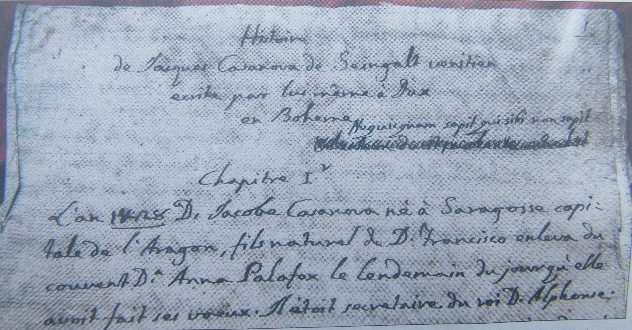 Histoire
de Jacques Casanova de Seingalt venitien
ecrite par lui même à Dux
en Boheme
Nequicquam sapit qui sibi non sapit
Chapitre I^r
L'an 1428 D. Jacobe Casanova né à Saragosse capi-
tale de l'Aragon, fils naturel de D. Francisco enleva du
couvent D.^a Anna Palafox le lendemain du jour qu'elle
avoit fait ses voeux. Il étoit secretaire du roi D. Alphonse.